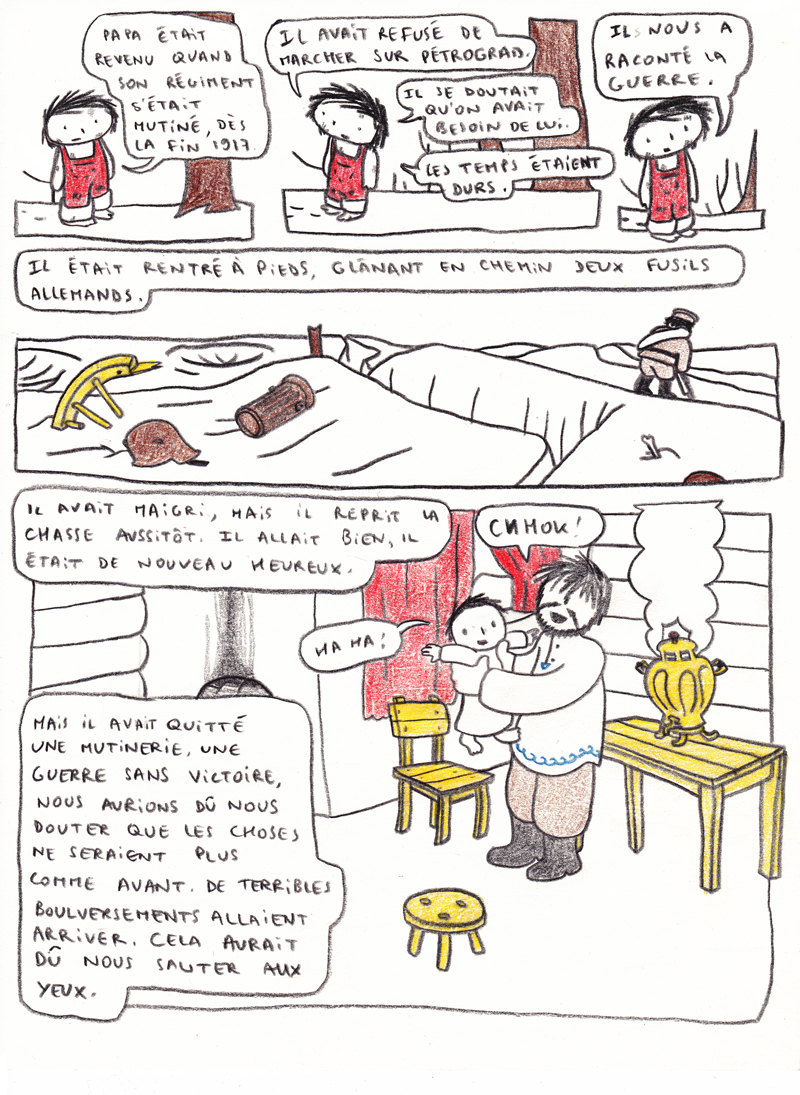 PAPA ÉTAIT
REVENU QUAND
SON RÉGIMENT
S'ÉTAIT
MUTINÉ, DÈS
LA FIN 1917.
IL AVAIT REFUSÉ DE
MARCHER SUR PÉTROGRAD.
IL SE DOUTAIT
QU'ON AVAIT
BESOIN DE LUI.
LES TEMPS ÉTAIENT
DURS.
ILS NOUS A
RACONTÉ LA
GUERRE.
IL ÉTAIT RENTRÉ À PIEDS, GLÂNANT EN CHEMIN DEUX FUSILS
ALLEMANDS.
IL AVAIT MAIGRI, MAIS IL REPRIT LA
CHASSE AUSSITÔT. IL ALLAIT BIEN, IL
ÉTAIT DE NOUVEAU HEUREUX.
СИНОК!
HA HA!
MAIS IL AVAIT QUITTÉ
UNE MUTINERIE, UNE
GUERRE SANS VICTOIRE,
NOUS AURIONS DÛ NOUS
DOUTER QUE LES CHOSES
NE SERAIENT PLUS
COMME AVANT. DE TERRIBLES
BOULVERSEMENTS ALLAIENT
ARRIVER. CELA AURAIT
DÛ NOUS SAUTER AUX
YEUX.